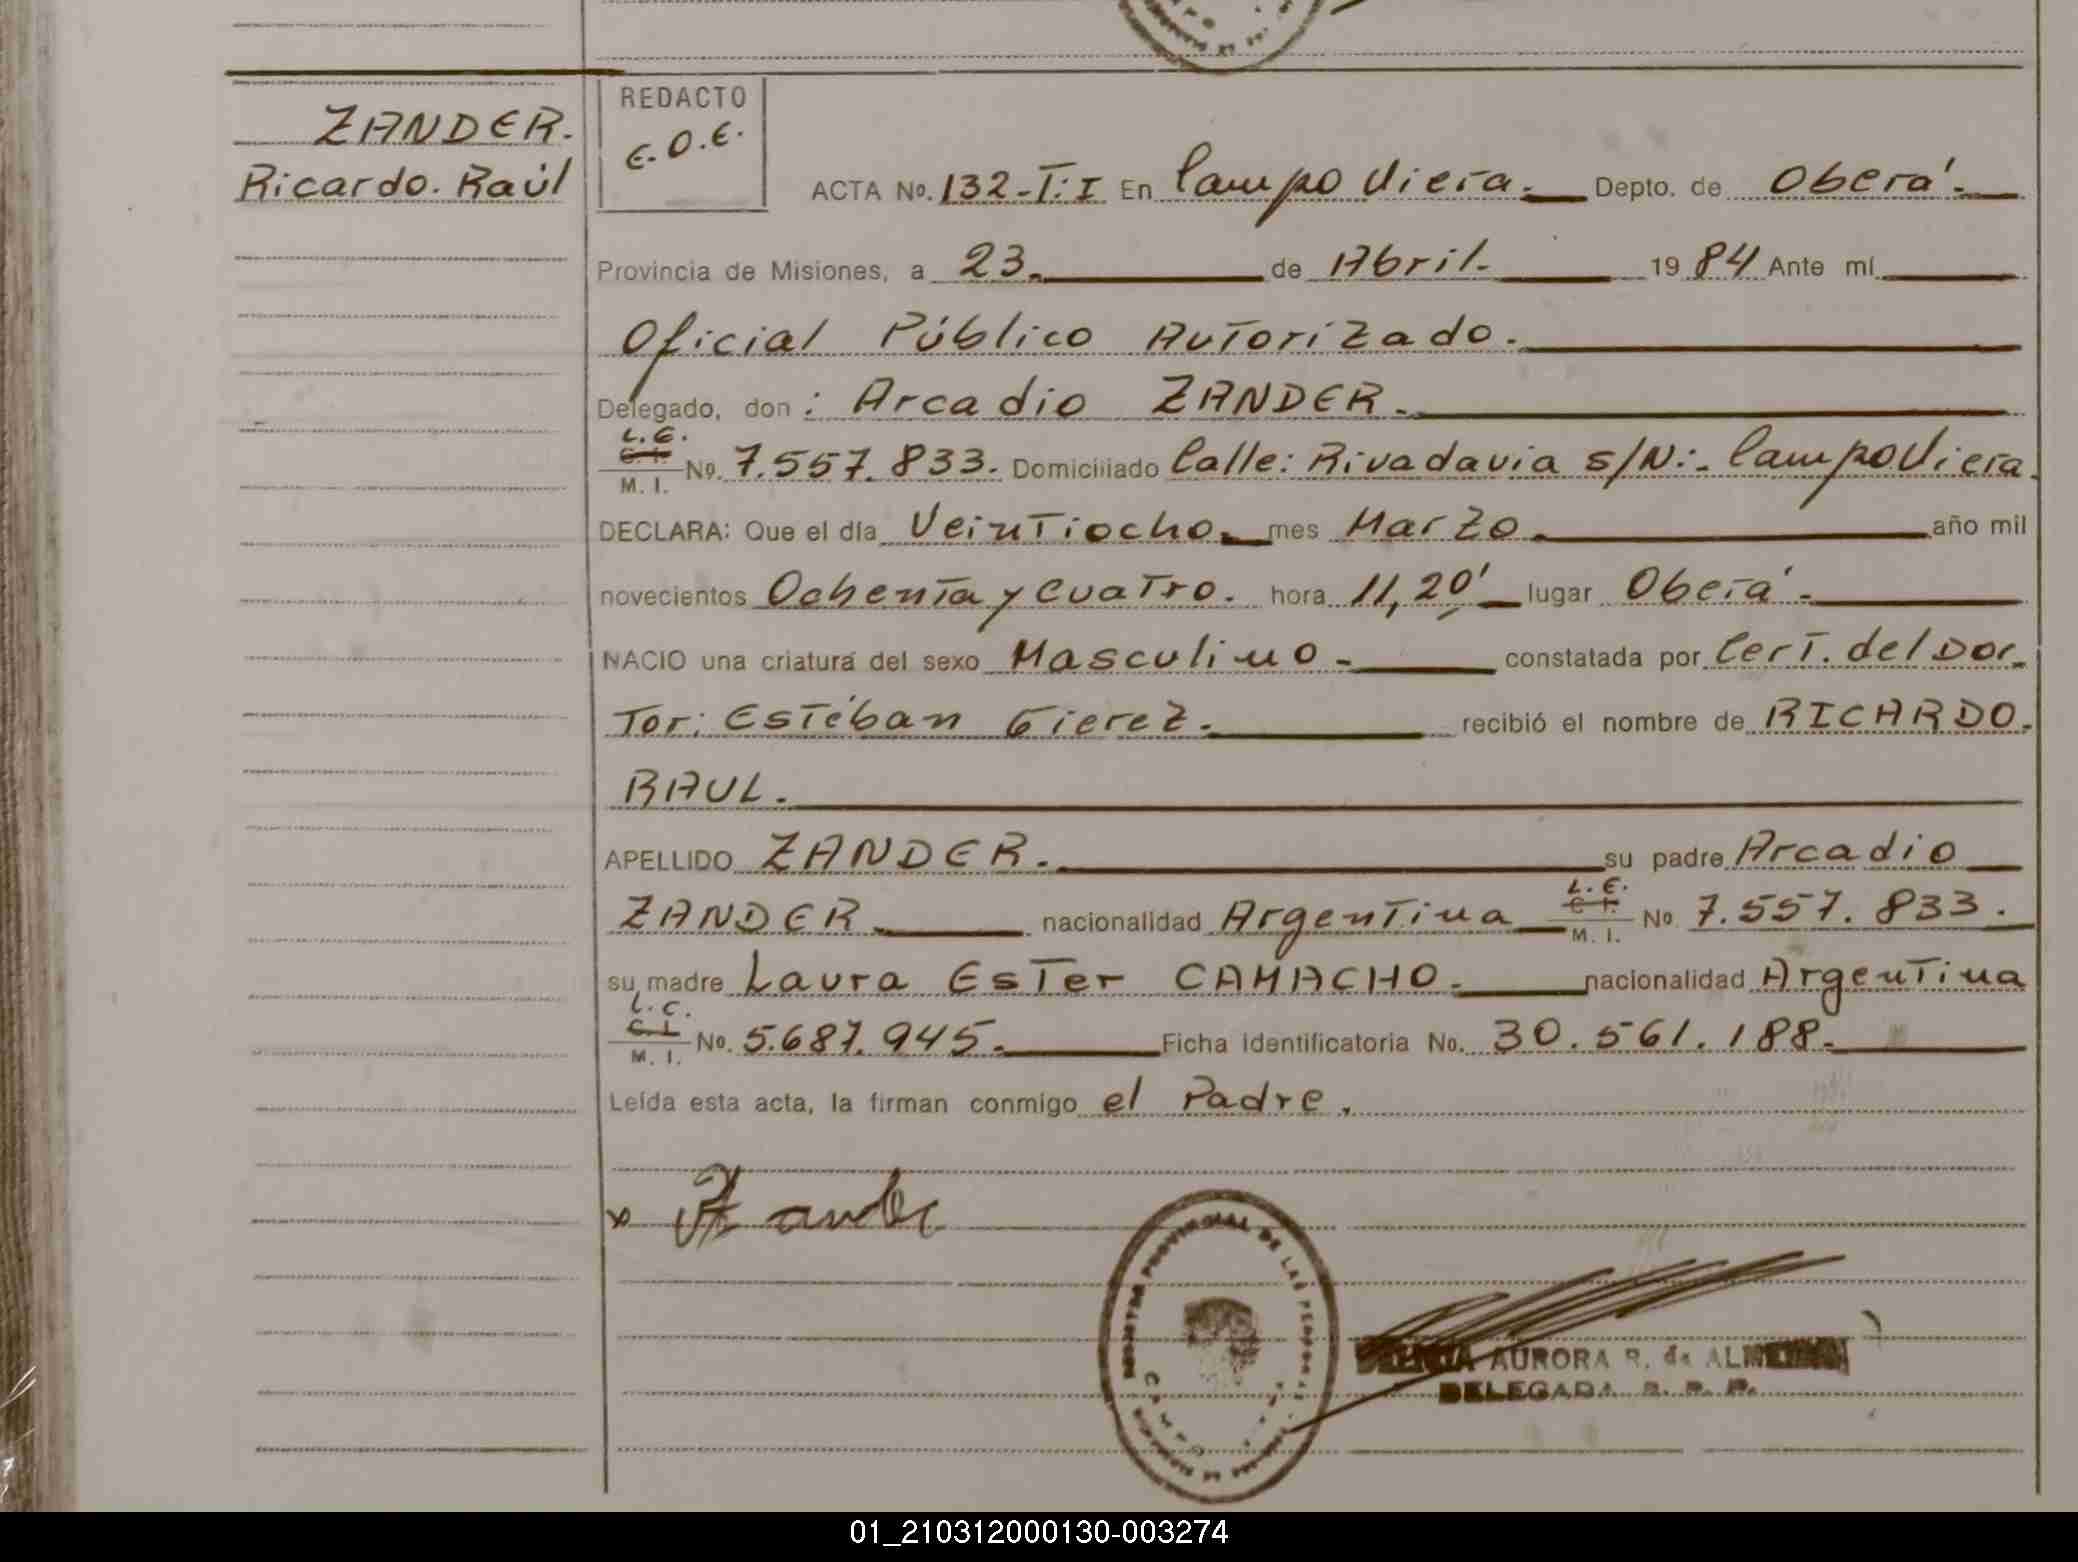 ZANDER.
Ricardo. Raúl
REDACTO
E.O.E.
ACTA No. 132-T: I En Campo Viera. Depto. de Oberá.
Provincia de Misiones, a 23. de Abril. 1984 Ante mí
Oficial Público Autorizado.
Delegado, don : Arcadio ZANDER.
L.E.
C. I.
M. I.
No. 7.557.833. Domiciliado Calle: Rivadavia s/N:. Campo Viera.
DECLARA: Que el día Veintiocho. mes Marzo. año mil
novecientos Ochenta y cuatro. hora 11,20' lugar Oberá.
NACIO una criatura del sexo Masculino - constatada por Cert. del Doc_
Tor: Estéban Gierez. recibió el nombre de RICARDO.
RAUL.
APELLIDO ZANDER. su padre Arcadio
ZANDER nacionalidad Argentina
L.E.
C. I.
M. I.
No 7.557.833.
su madre Laura Ester CAMACHO. nacionalidad Argentina
L.C.
C. I.
M. I.
No. 5.687.945. Ficha identificatoria No. 30.561.188.
Leída esta acta, la firman conmigo el Padre.
PROVINCIAL DE LAS PERSONAS
CAMPO
AURORA R. de
DELEGADA R. P. P.
01_210312000130-003274